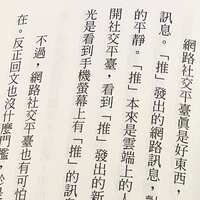 網路社交平臺眞是好東西，
訊息。「推」發出的網路訊息，
的平靜。「推」本來是雲端上的人
開社交平臺，看到「推」發出的新
光是看到手機螢幕上有「推」的訊
不過，網路社交平臺也有可怕
在。反正回文也沒什麼門檻，